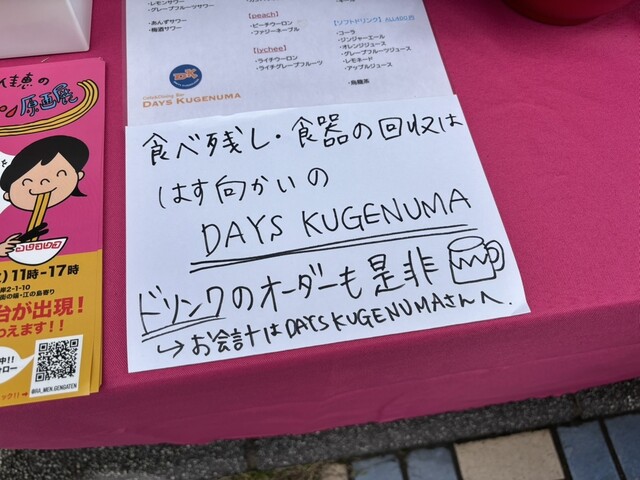 ・レモンサワー
・グレープフルーツサワー
・あんずサワー
・梅酒サワー
【peach】
・ピーチウーロン
・ファジーネーブル
【lychee】
・ライチウーロン
・ライチグレープフルーツ
【ソフトドリンク】
・コーラ
・ジンジャーエール
・オレンジジュース
・グレープフルーツジュース
・レモネード
・アップルジュース
・烏龍茶
DAYS KUGENUMA
食べ残し・食器の回収は
はす向かいの
DAYS KUGENUMA
ドリンクのオーダーも是非
→お会計はDAYS KUGENUMAさんへ.
原画展
11時-17時
2-1-10
台が出現!
えます!!
@RA_MEN.GENGATEN